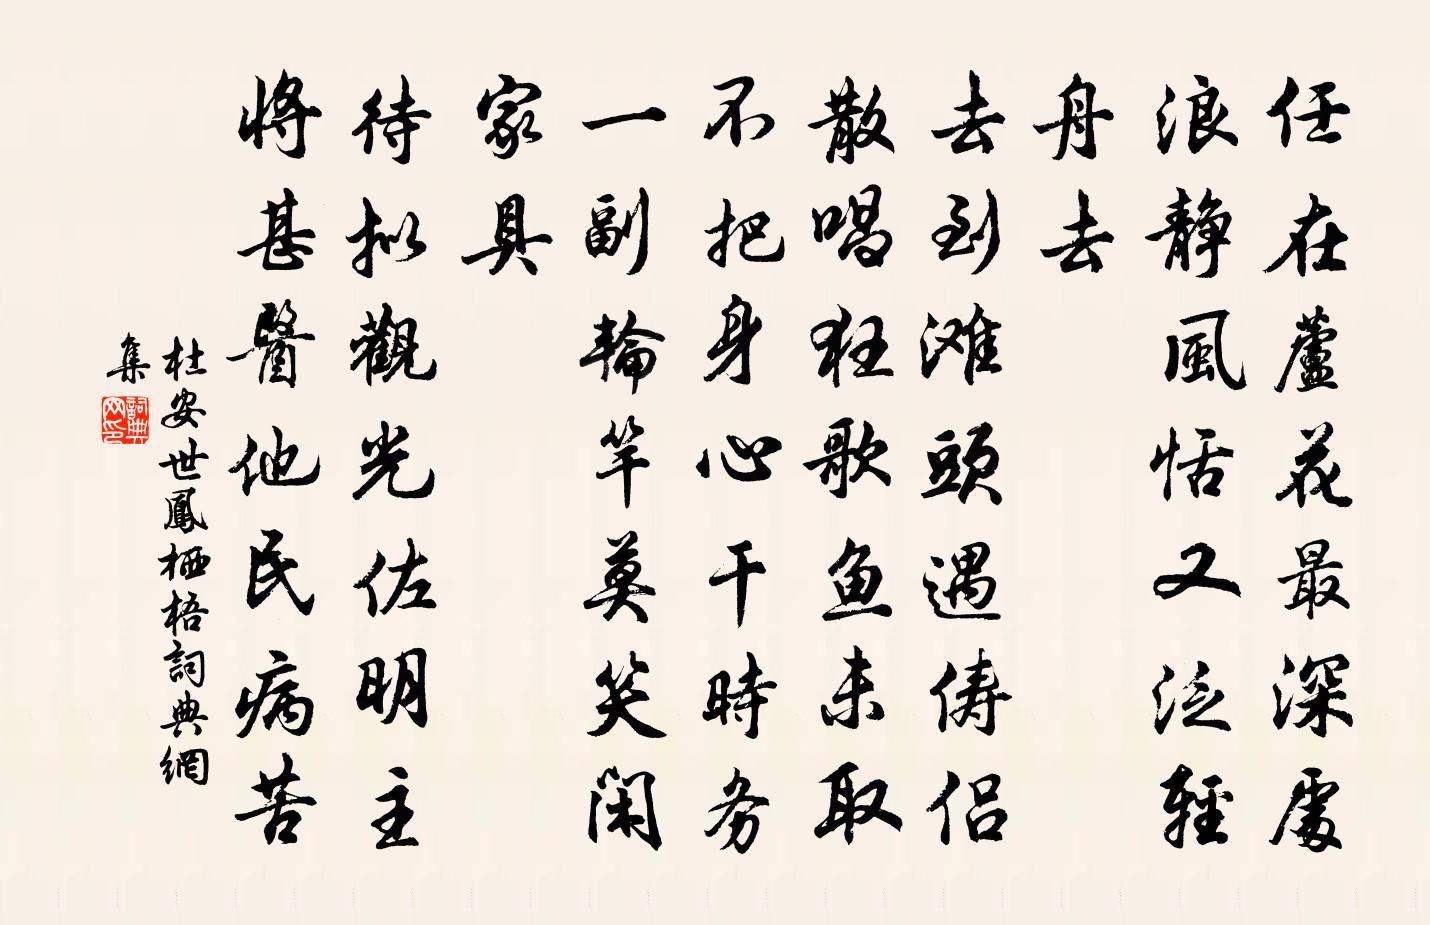 任在蘆花最深處
浪静風恬又泛輕
舟去
去到滩頭遇俦侣
散唱狂歌鱼未取
不把身心干時务
一副輪竿莫笑闲
家具
待拟觀光佐明主
将甚醫他民病苦
杜安世鳳栖梧詞典網
集
詞典網印